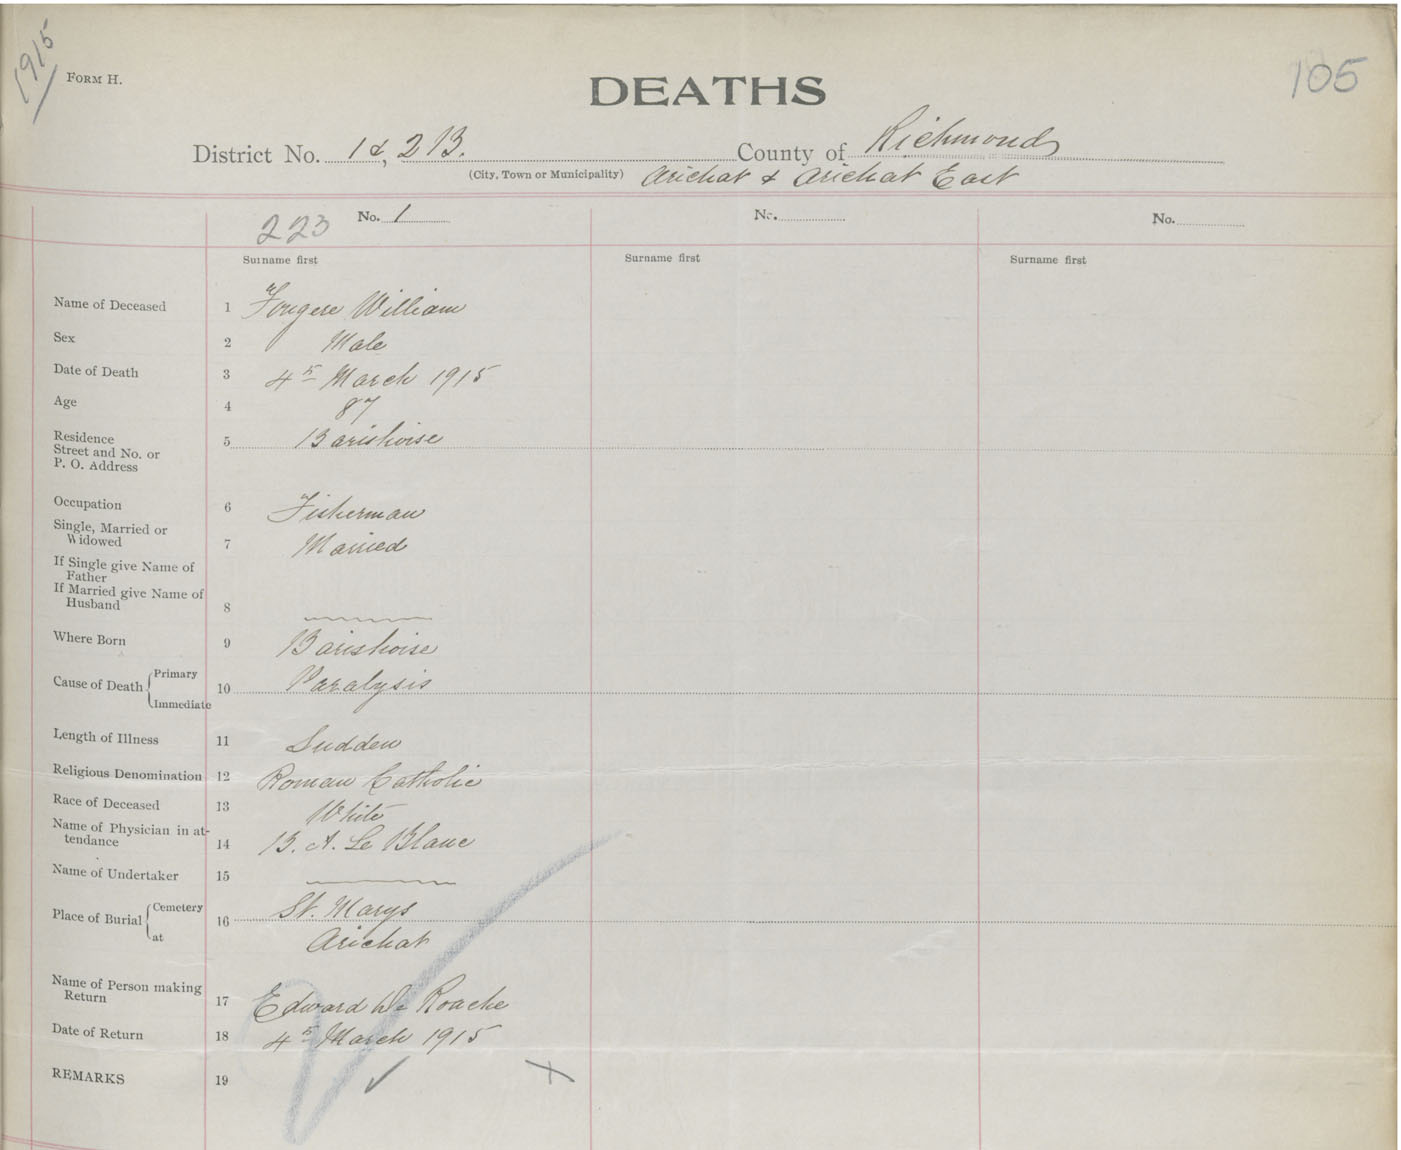 1915
FORM H.
DEATHS
105
District No. 1&, 2 B. County of Richmond
(City, Town or Municipality) Arichat & Arichat East
223 No. 1 No. No.
Surname first Surname first Surname first
Name of Deceased 1 Fougere William
Sex 2 Male
Date of Death 3 4th March 1915
Age 4 87
Residence
Street and No. or 5 Barishoise
P. O. Address
Occupation 6 Fisherman
Single, Married or
Widowed 7 Married
If Single give Name of
Father
If Married give Name of
Husband 8
Where Born 9 Barishoise
Cause of Death Primary 10 Paralysis
Immediate
Length of Illness 11 Sudden
Religious Denomination 12 Roman Catholic
Race of Deceased 13 White
Name of Physician in at-
tendance 14 B. A. Le Blanc
Name of Undertaker 15
Place of Burial Cemetery 16 St. Marys
at Arichat
Name of Person making
Return 17 Edward De Roache
Date of Return 18 4th March 1915
REMARKS 19